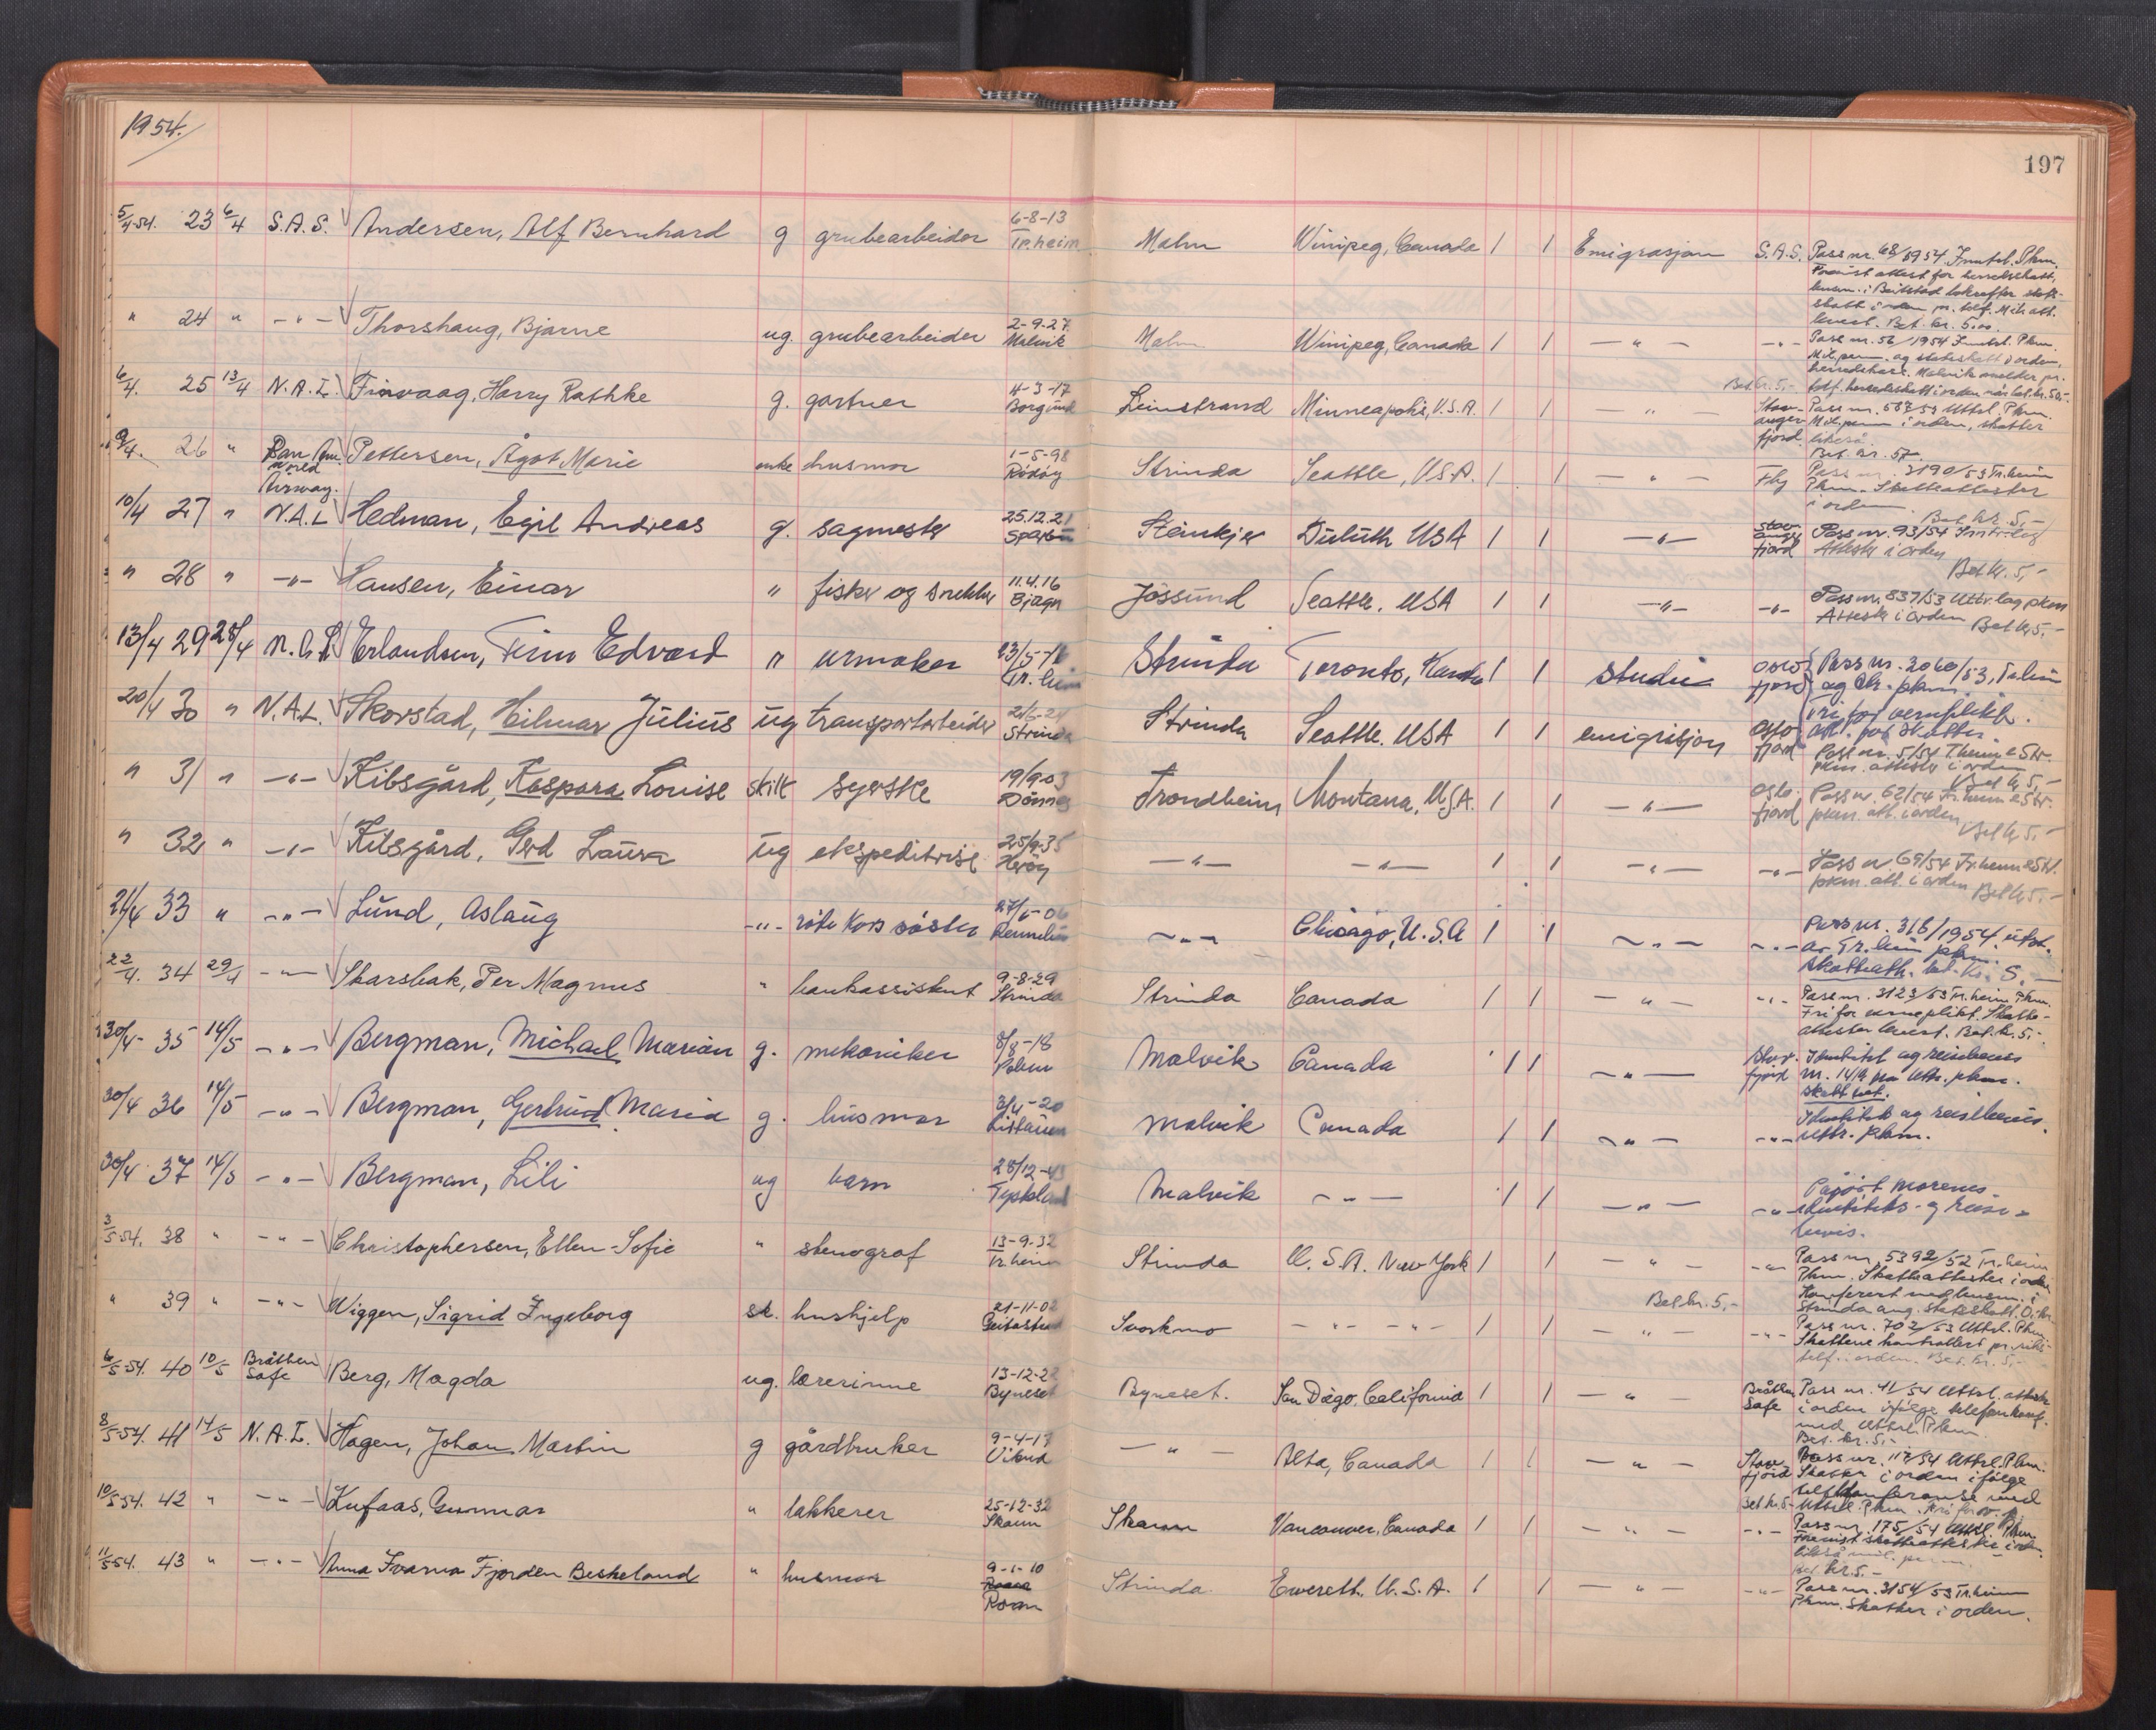 1954.
197
5/4-54. 23 6/4 S.A.S. Andersen, Alf Bernhard g grubearbeider 6-8-13 Tr.heim Malm Winipeg, Canada 1 1 Emigrasjon S.A.S. Pass nr. 68/1954 Inntrl. Pkm.
Forevist attest for herredsskatt,
lensm. i Beitstad bekrefter stats-
skatt i orden pr. telf. Mil. att.
levert. Bet. kr. 5.00.
" 24 " -"- Thorshaug, Bjarne ug. grubearbeider 2-9-27 Malvik Malm Winipeg, Canada 1 1 -"- -"- Pass nr. 56/1954 Inntrl. Pkm.
Mil.perm. og statsskatt i orden,
herredskass. Malvik melder pr.
telf. herredsskatt i orden når bet. kr. 50,-.
Bet. kr. 5,-
6/4. 25 13/4 N.A.L. Finvaag, Harry Rathke g. gartner 4-3-17 Borgund Leinstrand Minneapolis, U.S.A. 1 1 -"- Stav-
anger
fjord Pass nr. 587/53 Uttrl. Pkm.
Mil.perm i orden, skatter
likeså.
Bet. kr. 5,-.
9/4. 26 " Pan Am.
World
Airway. Pettersen, Ågot Marie enke husmor 1-5-98 Rödöy Strinda Seattle, U.S.A. 1 1 -"- Fly Pass nr. 3190/53 Tr.heim
Pkm. Skatteattester
i orden. Bet. kr. 5,-
10/4 27 " N.A.L Hedman, Egil Andreas g. sagmester 25.12.21 Sparbu Steinkjer Duluth USA 1 1 -"- Stav-
anger
fjord Pass nr. 93/54 Inntrlag
Attester i orden
Bet kr. 5,-
" 28 " -"- Hansen, Einar " fisker og snekker 11.4.16 Bjugn Jössund Seattle. USA 1 1 -"- -"- Pass nr. 837/53 Uttr.lag pkm
Attester i orden Bet kr 5,-
13/4 29 28/4 N.A.L Erlandsen, Finn Edvard " urmaker 23/5-16 Tr.heim Strinda Toronto, Kanada 1 1 studie Oslo
fjord Pass nr. 3060/53, Tr.heim
og Str. pkm.
Fri for verneplikt.
att. for skatter.
20/4 30 " N.A.L. Skorstad, Hilmar Julius ug transportarbeider Strinda Strinda Seattle. USA 1 1 emigrasjon Oslo
fjord Pass nr. 5/54 Tr.heim & Str.
pkm. attester i orden
Bet kr 5,-
" 31 " -"- Kibsgård, Kaspara Louise skilt syerske 19/9-03 Dönnes Trondheim Montana, USA. 1 1 -"- Oslo-
fjord Pass nr. 62/54 Tr.heim & Str.
pkm. att. i orden
Bet kr 5,-
" 32 " -"- Kibsgård, Gerd Laura ug ekspeditrise 25/9-35 Heröy -"- -"- 1 1 -"- -"- Pass nr 69/54 Tr.heim & Str.
pkm. att. i orden Bet kr 5,-
21/4 33 " -"- Lund, Aslaug -"- röde kors söster 27/6-06 -"- Chicago, U.S.A 1 1 -"- -"- Pass nr. 318/1954. utst.
av Tr.heim pkm.
Skatteatt. bet. kr. 5,-
22/4. 34 29/4 -"- Skarsbak, Per Magnus " bankassistent 9-8-29 Strinda Strinda Canada 1 1 -"- -"- Pass nr. 3123/53 Tr.heim Pkm.
Fri for verneplikt. Skatte-
attester levert. Bet. kr. 5,-
30/4- 35 14/5 -"- Bergman, Michael Marian g. mekaniker 8/8-18 Polen Malvik Canada 1 1 -"- Stav.
fjord Identitet og reisebevis
nr. 14/4 fra Uttr. pkm.
Skatt bet.
30/4 36 14/5 -"- Bergman, Gertrud Maria g. husmor 3/4-20 Litauen Malvik Canada 1 1 -"- -"- Identitets og reisebevis.
Uttr. pkm.
30/4 37 14/5 -"- Bergman, Lili ug barn 28/12-43 Tyskland Malvik -"- 1 1 -"- -"- Påført morens
identitets- og reise-
bevis.
3/5-54. 38 " -"- Christophersen, Ellen-Sofie " stenograf 13-9-32 Tr.heim Strinda U.S.A. New York 1 1 -"- -"- Pass nr. 5392/52 Tr.heim
Pkm. Skatteattester i orden
Konferert med lensm. i
Strinda ang. statsskatt. O.K.
Bet kr. 5,-
" 39 " -"- Wiggen, Sigrid Ingeborg sk. hushjelp 21-11-02 Geitastrand Svorkmo -"- -"- 1 1 -"- -"- Pass nr. 702/53 Uttrl. Pkm.
Skattene kontrollert pr. riks-
telf. i orden. Bet. kr. 5,-
6/5-54. 40 10/5 Bråthen
Safe Berg, Magda ug. lærerinne 13-12-22 Byneset Byneset. San Diego, California 1 1 -"- Bråthen
Safe Pass nr. 41/54 Uttrl. attester
i orden ifølge telefonkonf.
med Uttrl. Pkm.
Bet. kr. 5,-
8/5-54. 41 14/5 N.A.L. Hagen, Johan Martin g gårdbruker 9-4-17 -"- Alta, Canada 1 1 -"- Stav.
fjord Pass nr. 117/54 Uttrl. Pkm.
Skatter i orden ifølge
telefkonferanse med
Bet kr. 5- Uttrl. Pkm.
10/5-54. 42 " -"- Kufaas, Gunnar " lakkerer 25-12-32 Skaun Skaun Vancouver, Canada 1 1 -"- -"- Pass nr. 175/54 Uttrl. Pkm.
Forevist skatteattester i orden
likeså mil. perm.
Bet kr. 5.-
11/5-54. 43 " -"- Anna Ivarna Fjorden Beskeland " husmor 9-1-10 Roan Strinda Ewereth, U.S.A. 1 1 -"- -"- Pass nr. 3154/53 Tr.heim
Pkm. Skatter i orden.